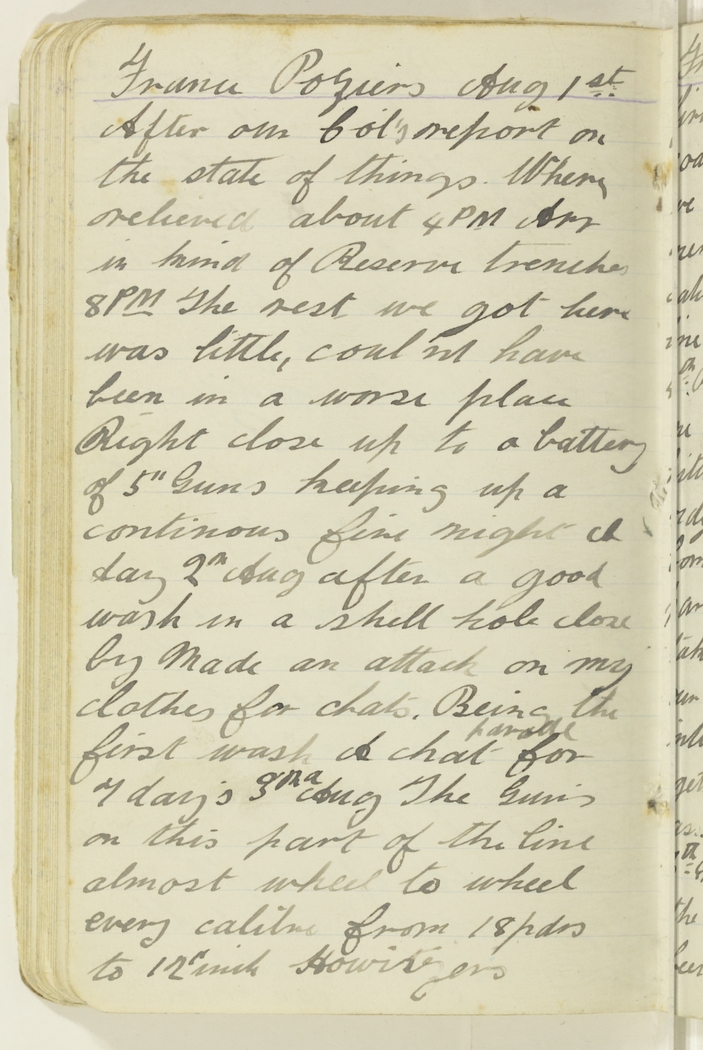 France Poziers Aug 1st
After our Col's report on
the state of things. Where
relieved about 4 PM Arr
in kind of Reserve trenches
8 PM The rest we got here
was little, could'nt have
been in a worse place
Right close up to a battery
of 5" Guns keeping up a
continous fire night &
day 2n Aug after a good
wash in a shell hole close
by Made an attack on my
clothes for chats. Being the
first wash & chat parade for
7 day's 3rd Aug The Guns
on this part of the line
almost wheel to wheel
every calibre from 18 pdrs
to 12 inch Howitzers